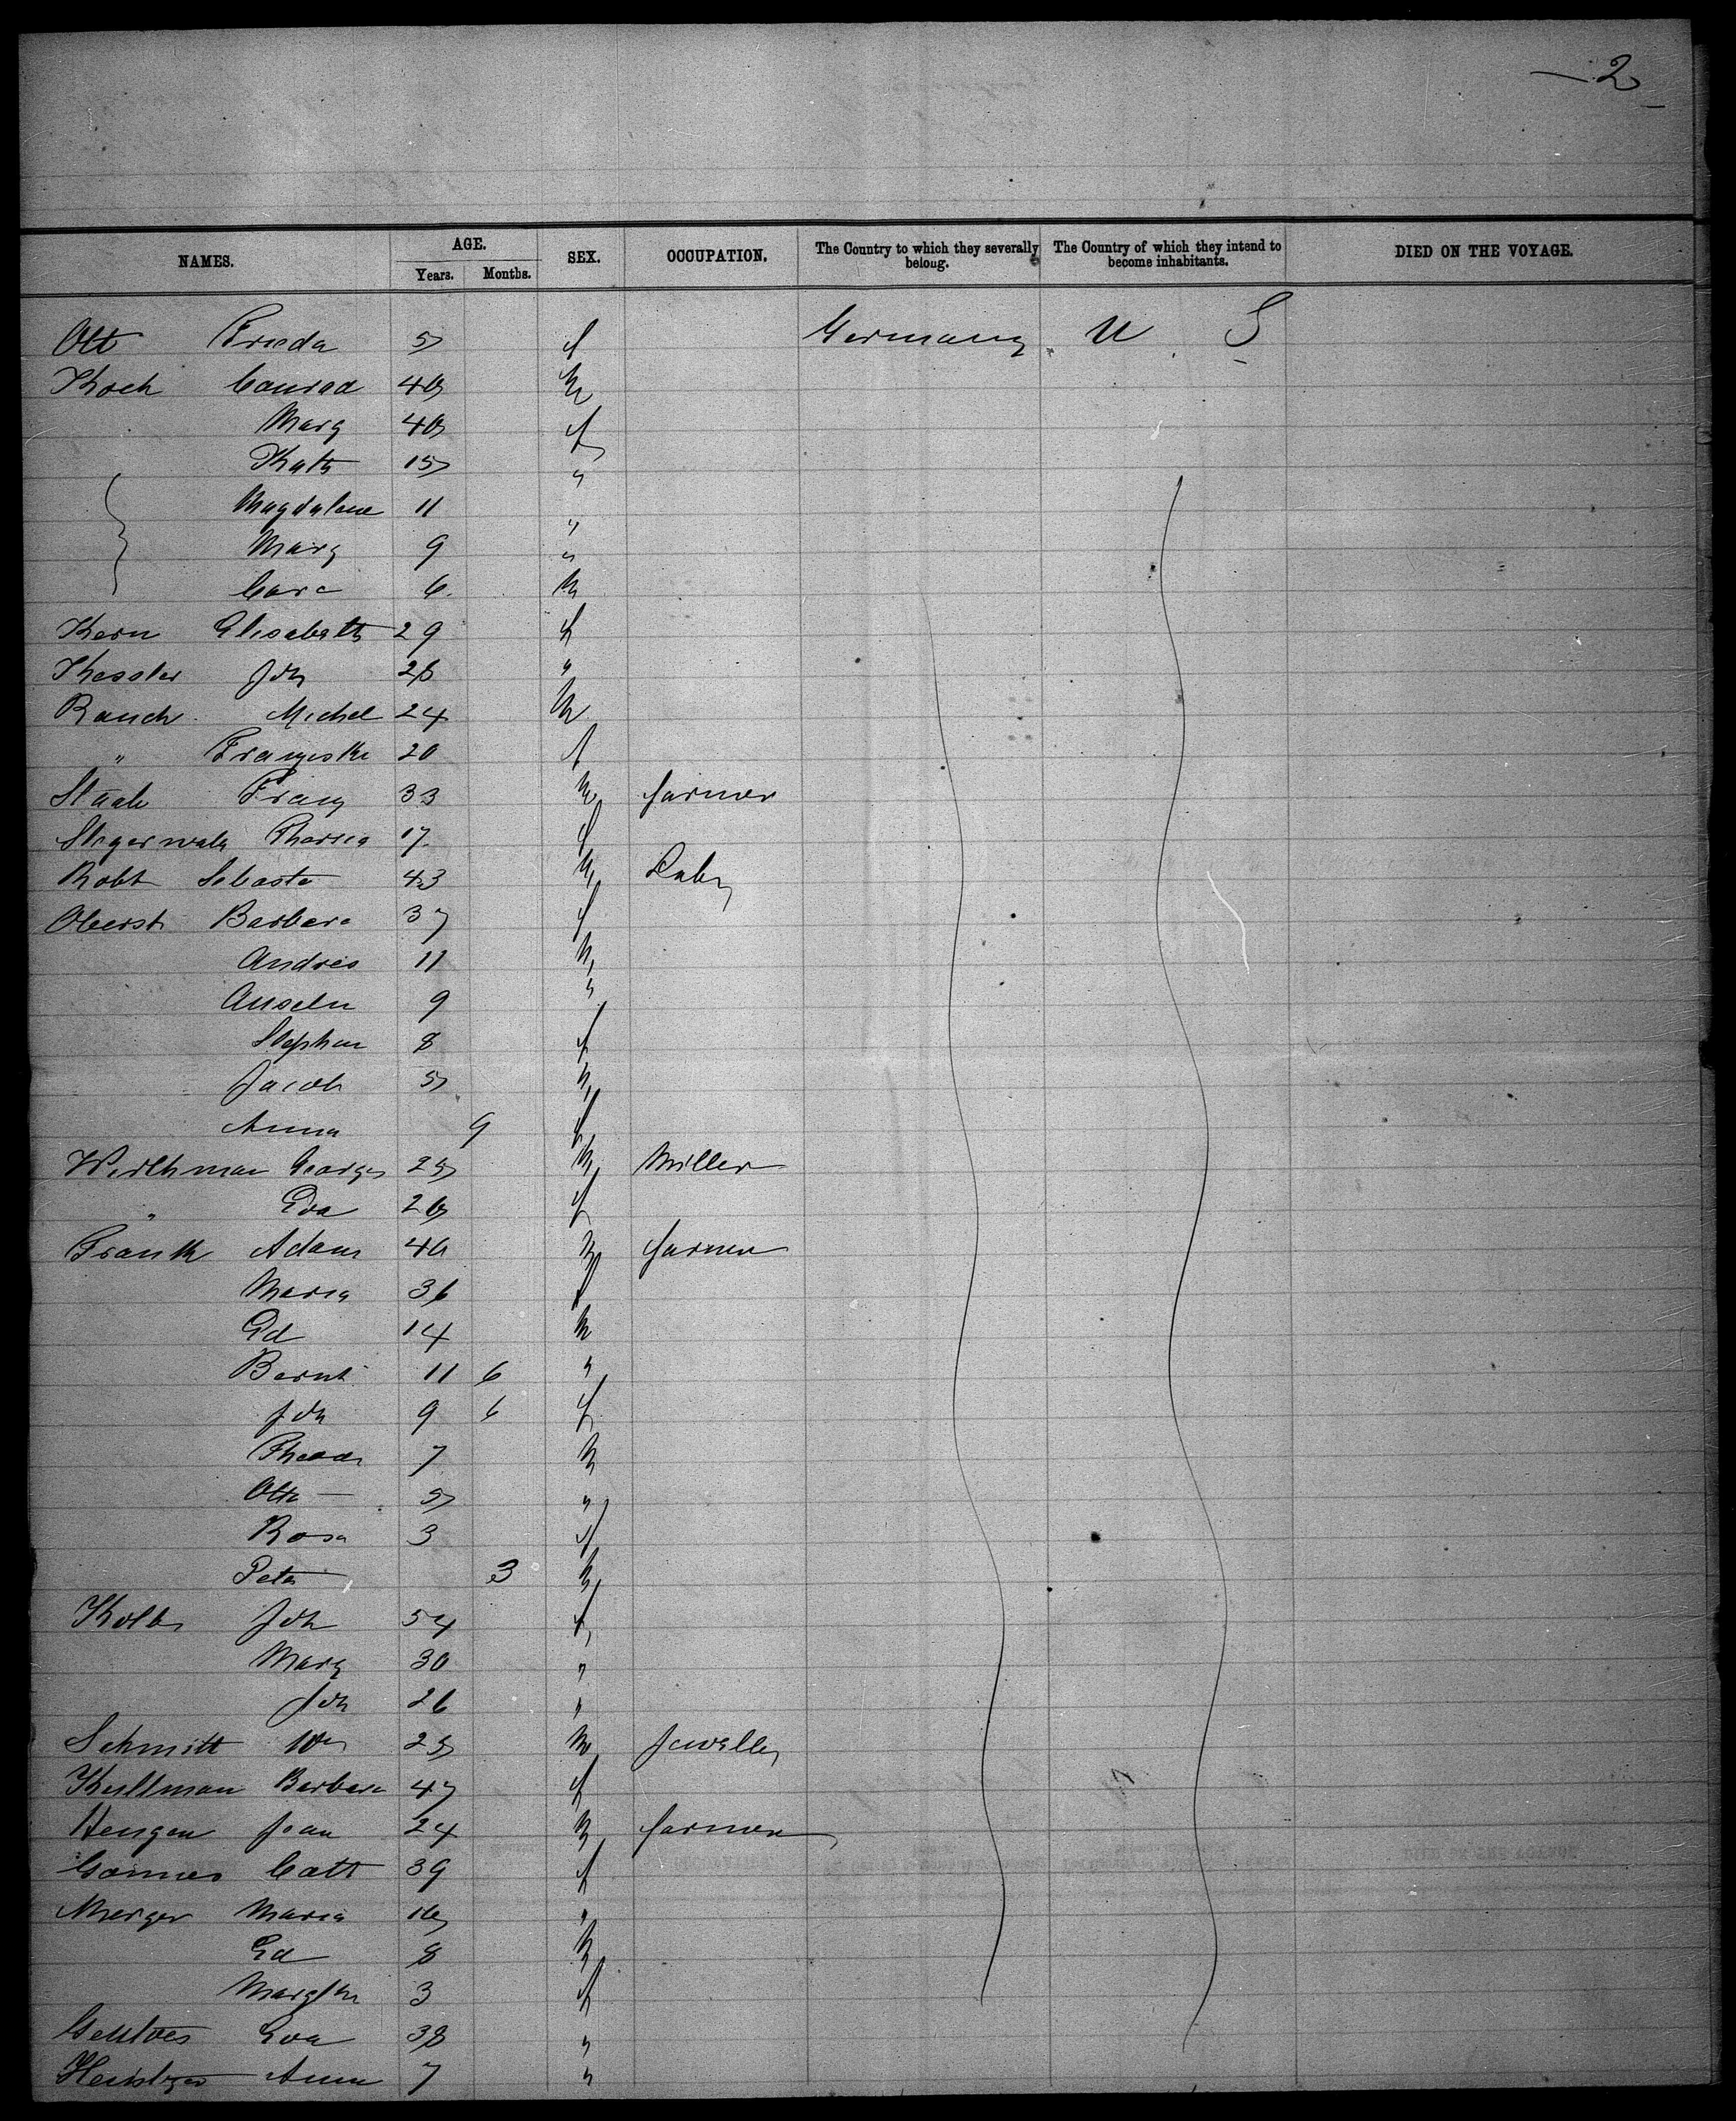 — 2 —
NAMES. AGE. SEX. OCCUPATION. The Country to which they severally belong. The Country of which they intend to become inhabitants. DIED ON THE VOYAGE.
Years. Months.
Ott Frieda 5 f Germany U S
Koch Conrad 40 m
Marg 40 f
Kath 15 "
Magdalene 11 "
Marg 9 "
6 m
Kern Elisabeth 29 f
Kessler Joh 26 "
Rauch Michel 24 m
" Franziska 20 f
Staab Franz 33 m farmer
Theresa 17 f
Sebasta 43 m
Oberst Barbara 37 f
Andres 11 m
Anselm 9 "
Stephan 8 f
Jacob 5 m
Anna 9 f
Wirthman Georg 25 m Miller
" Eva 26 f
Frank Adam 40 m farmer
Maria 36 f
Ed 14 m
Bernh 11 6 "
Joh 9 6 f
Theodr 7 m
Otto — 5 "
Rosa 3 f
Peter 3 m
Kolb Joh 54 f
Marg 30 "
Joh 26 "
Schmitt Wm 25 m Jewelly
Kullman Barbara 47 f
Hengen Jean 24 m farmer
Cath 39 f
Merger Maria 16 "
Ed 8 m
3 f
Eva 38 "
Anna 7 "